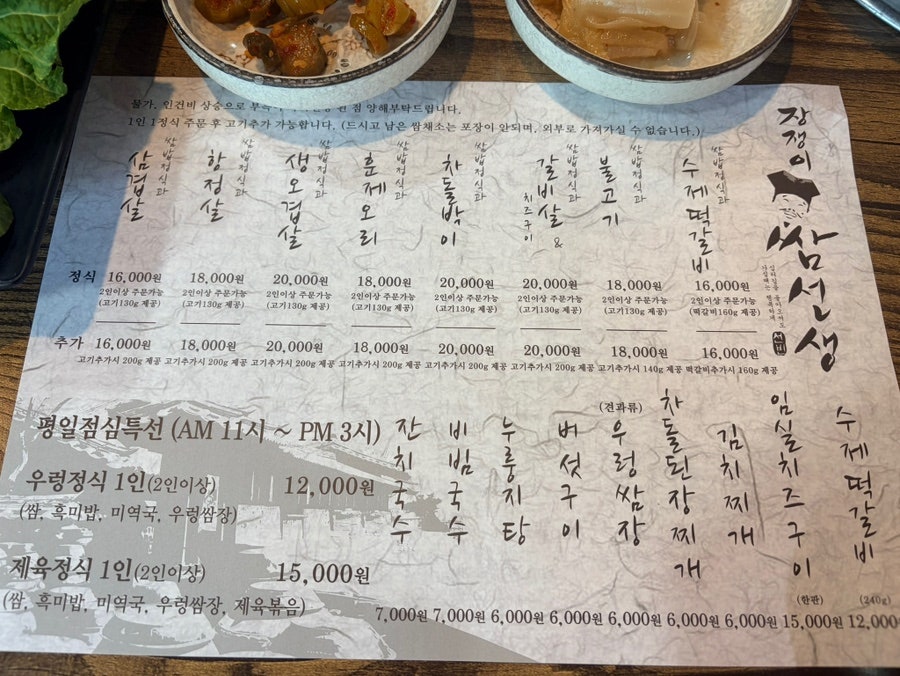 물가, 인건비 상승으로 된 점 양해부탁드립니다.
1인 1정식 주문 후 고기추가 가능합니다. (드시고 남은 쌈채소는 포장이 안되며, 외부로 가져가실 수 없습니다.)
장쟁이 쌈선생
쌈밥정식과 삼겹살
쌈밥정식과 항정살
쌈밥정식과 생오겹살
쌈밥정식과 훈제오리
쌈밥정식과 차돌박이
쌈밥정식과 갈비살 & 치즈구이
쌈밥정식과 불고기
쌈밥정식과 수제떡갈비
정식 16,000원 18,000원 20,000원 18,000원 20,000원 20,000원 18,000원 16,000원
2인이상 주문가능 2인이상 주문가능 2인이상 주문가능 2인이상 주문가능 2인이상 주문가능 2인이상 주문가능 2인이상 주문가능 2인이상 주문가능
(고기130g 제공) (고기130g 제공) (고기130g 제공) (고기130g 제공) (고기130g 제공) (고기130g 제공) (고기130g 제공) (떡갈비160g 제공)
추가 16,000원 18,000원 20,000원 18,000원 20,000원 20,000원 18,000원 16,000원
고기추가시 200g 제공 고기추가시 200g 제공 고기추가시 200g 제공 고기추가시 200g 제공 고기추가시 200g 제공 고기추가시 200g 제공 고기추가시 140g 제공 떡갈비추가시 160g 제공
평일점심특선 (AM 11시 ~ PM 3시)
우렁정식 1인(2인이상) 12,000원
(쌈, 흑미밥, 미역국, 우렁쌈장)
제육정식 1인(2인이상) 15,000원
(쌈, 흑미밥, 미역국, 우렁쌈장, 제육볶음)
잔치국수
비빔국수
누룽지탕
버섯구이
(견과류) 우렁쌈장
차돌된장찌개
김치찌개
임실치즈구이 (한판)
수제떡갈비 (240g)
7,000원 7,000원 6,000원 6,000원 6,000원 6,000원 6,000원 15,000원 12,000원